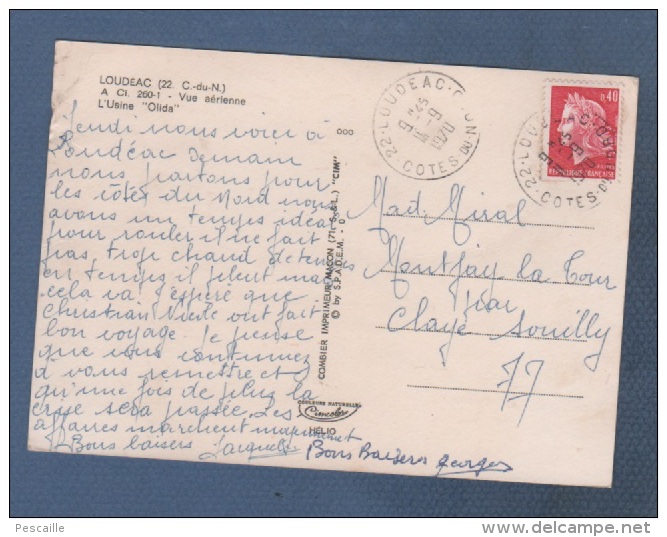 LOUDEAC (22. C.-du-N.)
A Ci. 260-1 - Vue aérienne
L'Usine "Olida"
Jeudi nous voici à
Loudéac Demain
nous partons pour
les côtes du Nord nous
avons un temps idéal
pour rouler il ne fait
pas trop chaud de temps
en temps il pleut mais
cela va. J'espère que
Christian Mute ont fait
bon voyage. Je pense
que vous continuez
à vous remettre et
qu'une fois de plus la
crise sera passée. Les
affaires marchent
Bons baisers Jacqueline
Bons Baisers georges
COMBIER IMPRIMEUR MACON (71. S.-&-L.) "CIM"
© by S.P.A.D.E.M. - 0
COULEURS NATURELLES
Cimcolor
HÉLIO
22-LOUDEAC-C.
COTES DU N.
1970
0,40
REPUBLIQUE FRANÇAISE
22-LOUD
COTES-D
Mad Miral
Montjay la Tour
par
Claye Souilly
77
Pescaille
http://www.delcampe.net